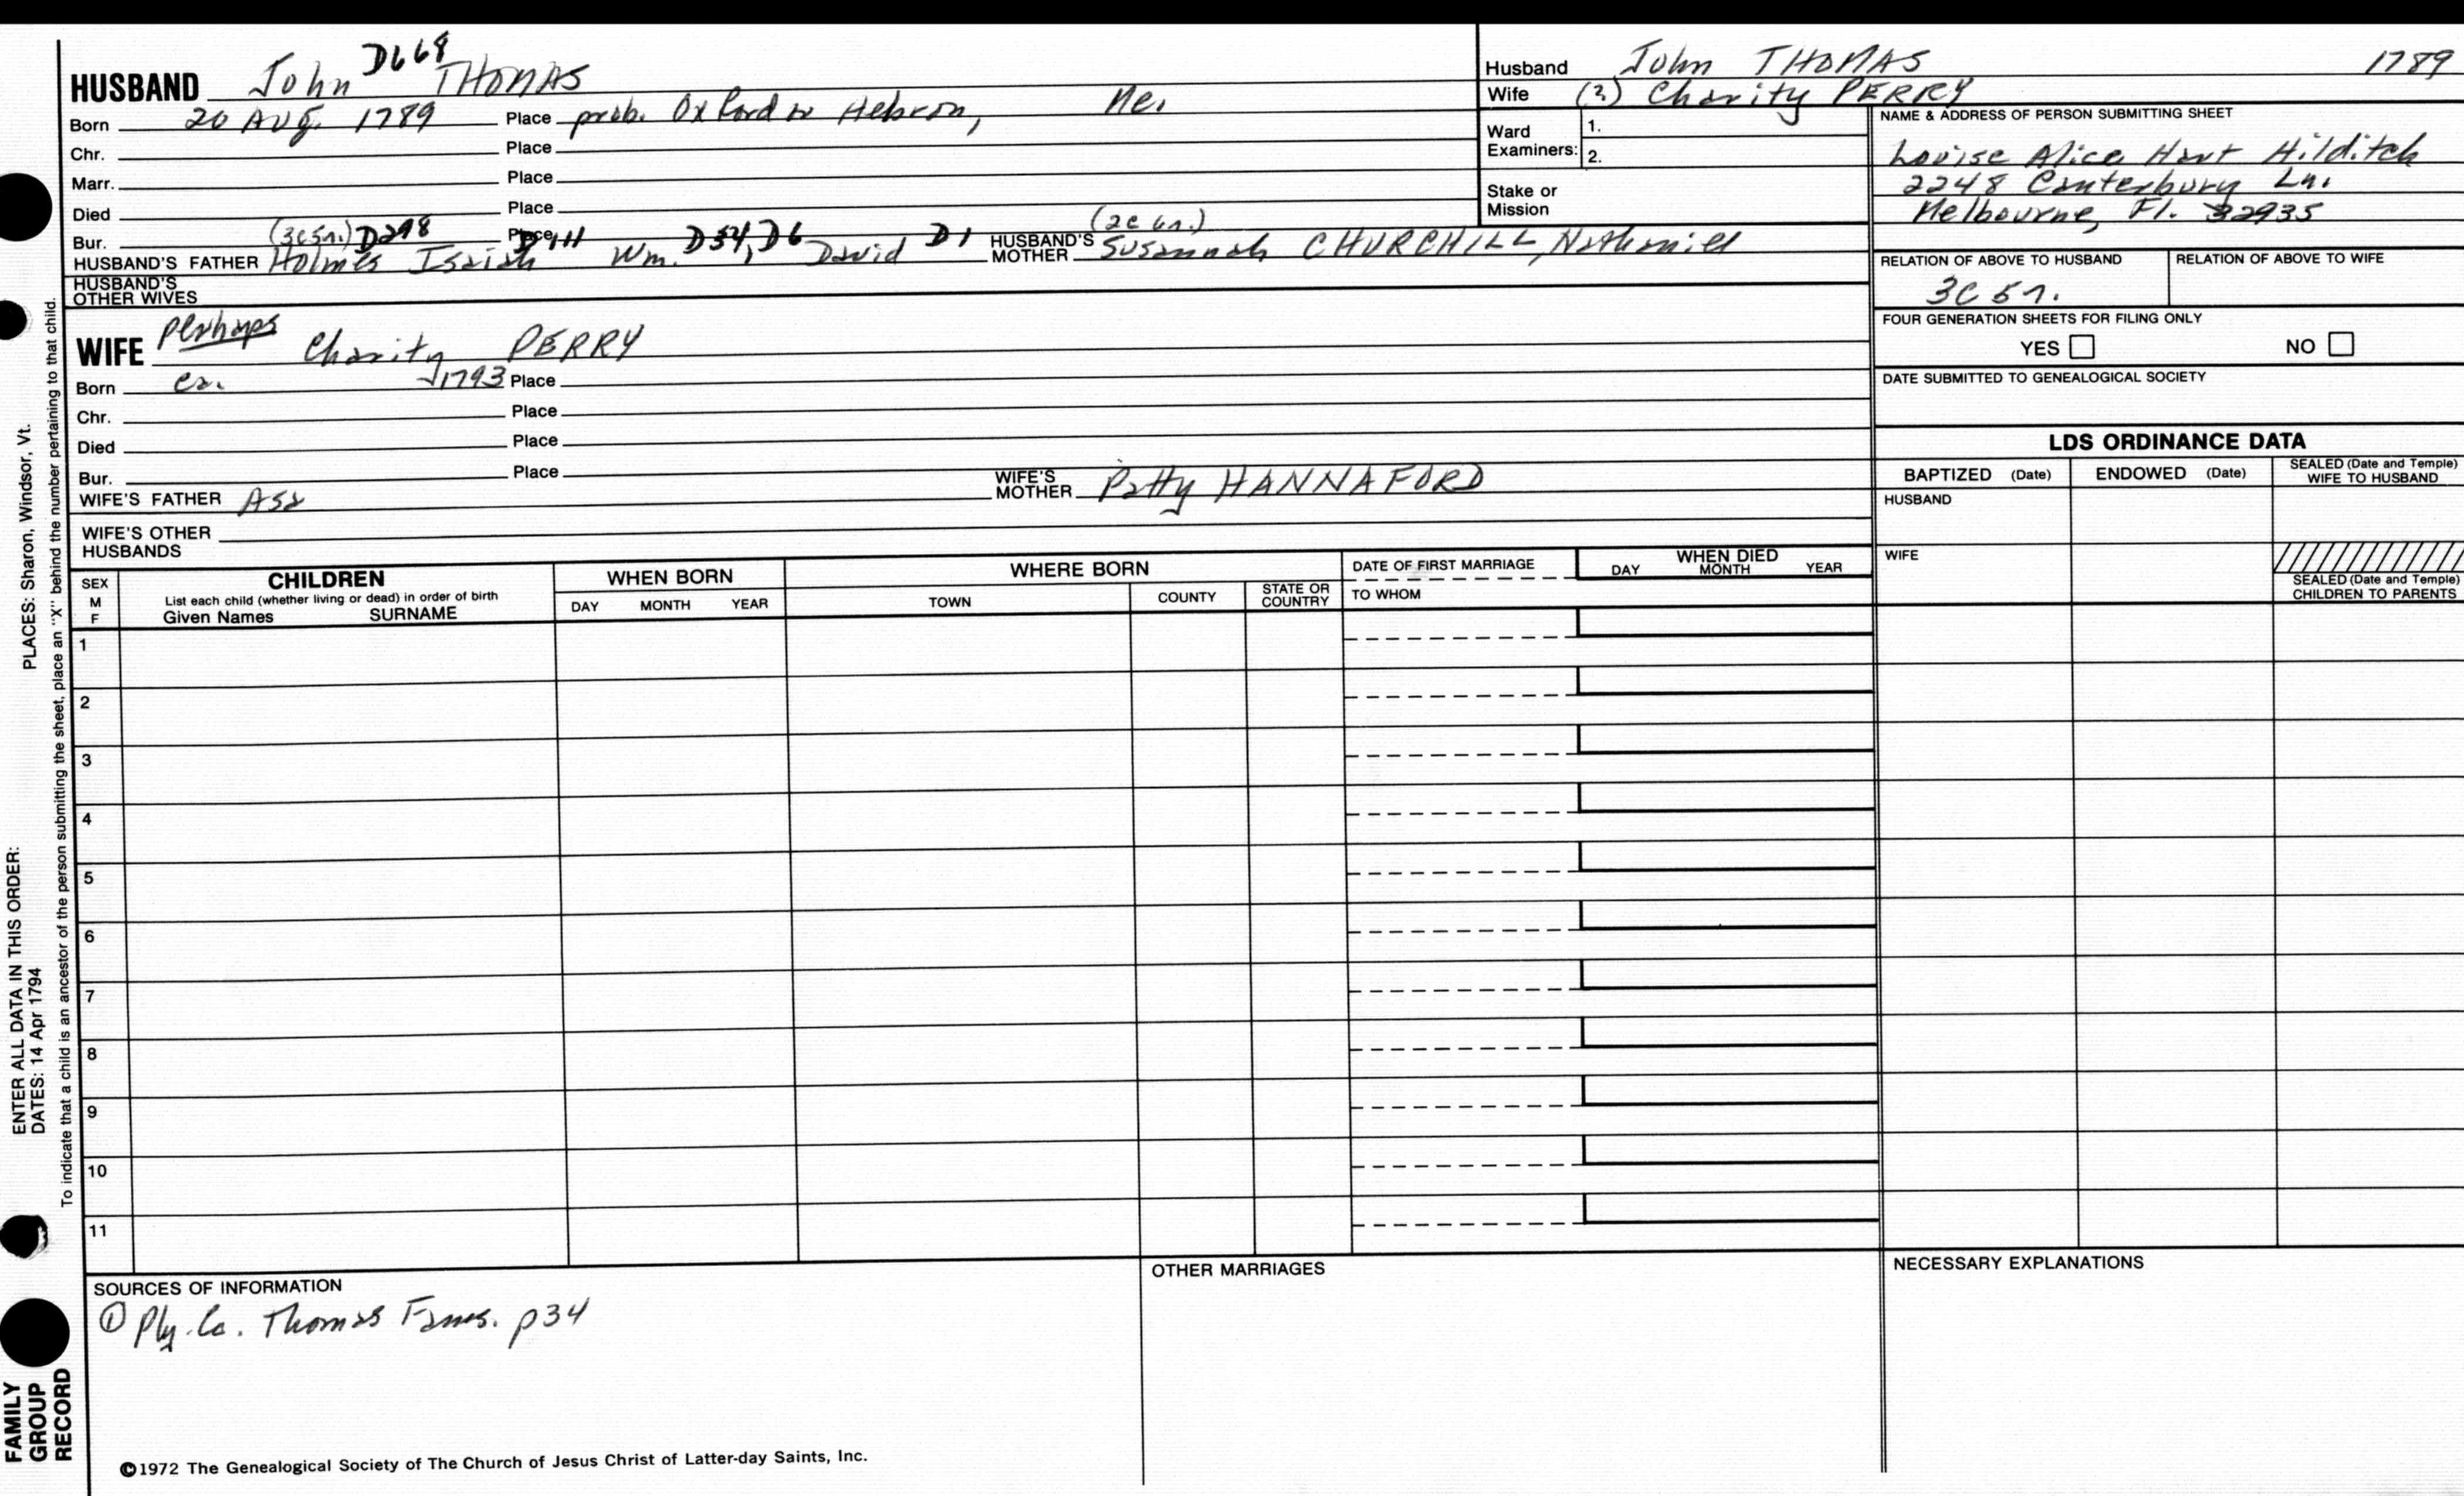 HUSBAND John D668 THOMAS
Born 20 AUG. 1789 Place prob. Oxford or Hebron, Me.
Chr. Place
Marr. Place
Died Place
Bur. Place
(3c5n.) D298 D111 D54, D6 D1 (2c6n.)
HUSBAND'S FATHER Holmes Isaiah Wm. David HUSBAND'S MOTHER Susannah CHURCHILL, Nathaniel
HUSBAND'S OTHER WIVES
WIFE perhaps Charity PERRY
Born ca. 1793 Place
Chr. Place
Died Place
Bur. Place
WIFE'S FATHER Asa WIFE'S MOTHER Patty HANNAFORD
WIFE'S OTHER HUSBANDS
Husband John THOMAS 1789
Wife (?) Charity PERRY
Ward Examiners: 1.
2.
Stake or Mission
NAME & ADDRESS OF PERSON SUBMITTING SHEET
Louise Alice Hart Hilditch
2248 Canterbury Ln.
Melbourne, Fl. 32935
RELATION OF ABOVE TO HUSBAND RELATION OF ABOVE TO WIFE
3C 5n.
FOUR GENERATION SHEETS FOR FILING ONLY
YES NO
DATE SUBMITTED TO GENEALOGICAL SOCIETY
LDS ORDINANCE DATA
BAPTIZED (Date) ENDOWED (Date) SEALED (Date and Temple) WIFE TO HUSBAND
HUSBAND
WIFE
SEALED (Date and Temple) CHILDREN TO PARENTS
SEX M F
CHILDREN
List each child (whether living or dead) in order of birth
Given Names SURNAME
WHEN BORN
DAY MONTH YEAR
WHERE BORN
TOWN COUNTY STATE OR COUNTRY
DATE OF FIRST MARRIAGE
TO WHOM
WHEN DIED
DAY MONTH YEAR
1
2
3
4
5
6
7
8
9
10
11
SOURCES OF INFORMATION
① Ply. Co. Thomas Fams. p34
OTHER MARRIAGES
NECESSARY EXPLANATIONS
©1972 The Genealogical Society of The Church of Jesus Christ of Latter-day Saints, Inc.
FAMILY GROUP RECORD
ENTER ALL DATA IN THIS ORDER:
DATES: 14 Apr 1794 PLACES: Sharon, Windsor, Vt.
To indicate that a child is an ancestor of the person submitting the sheet, place an "X" behind the number pertaining to that child.